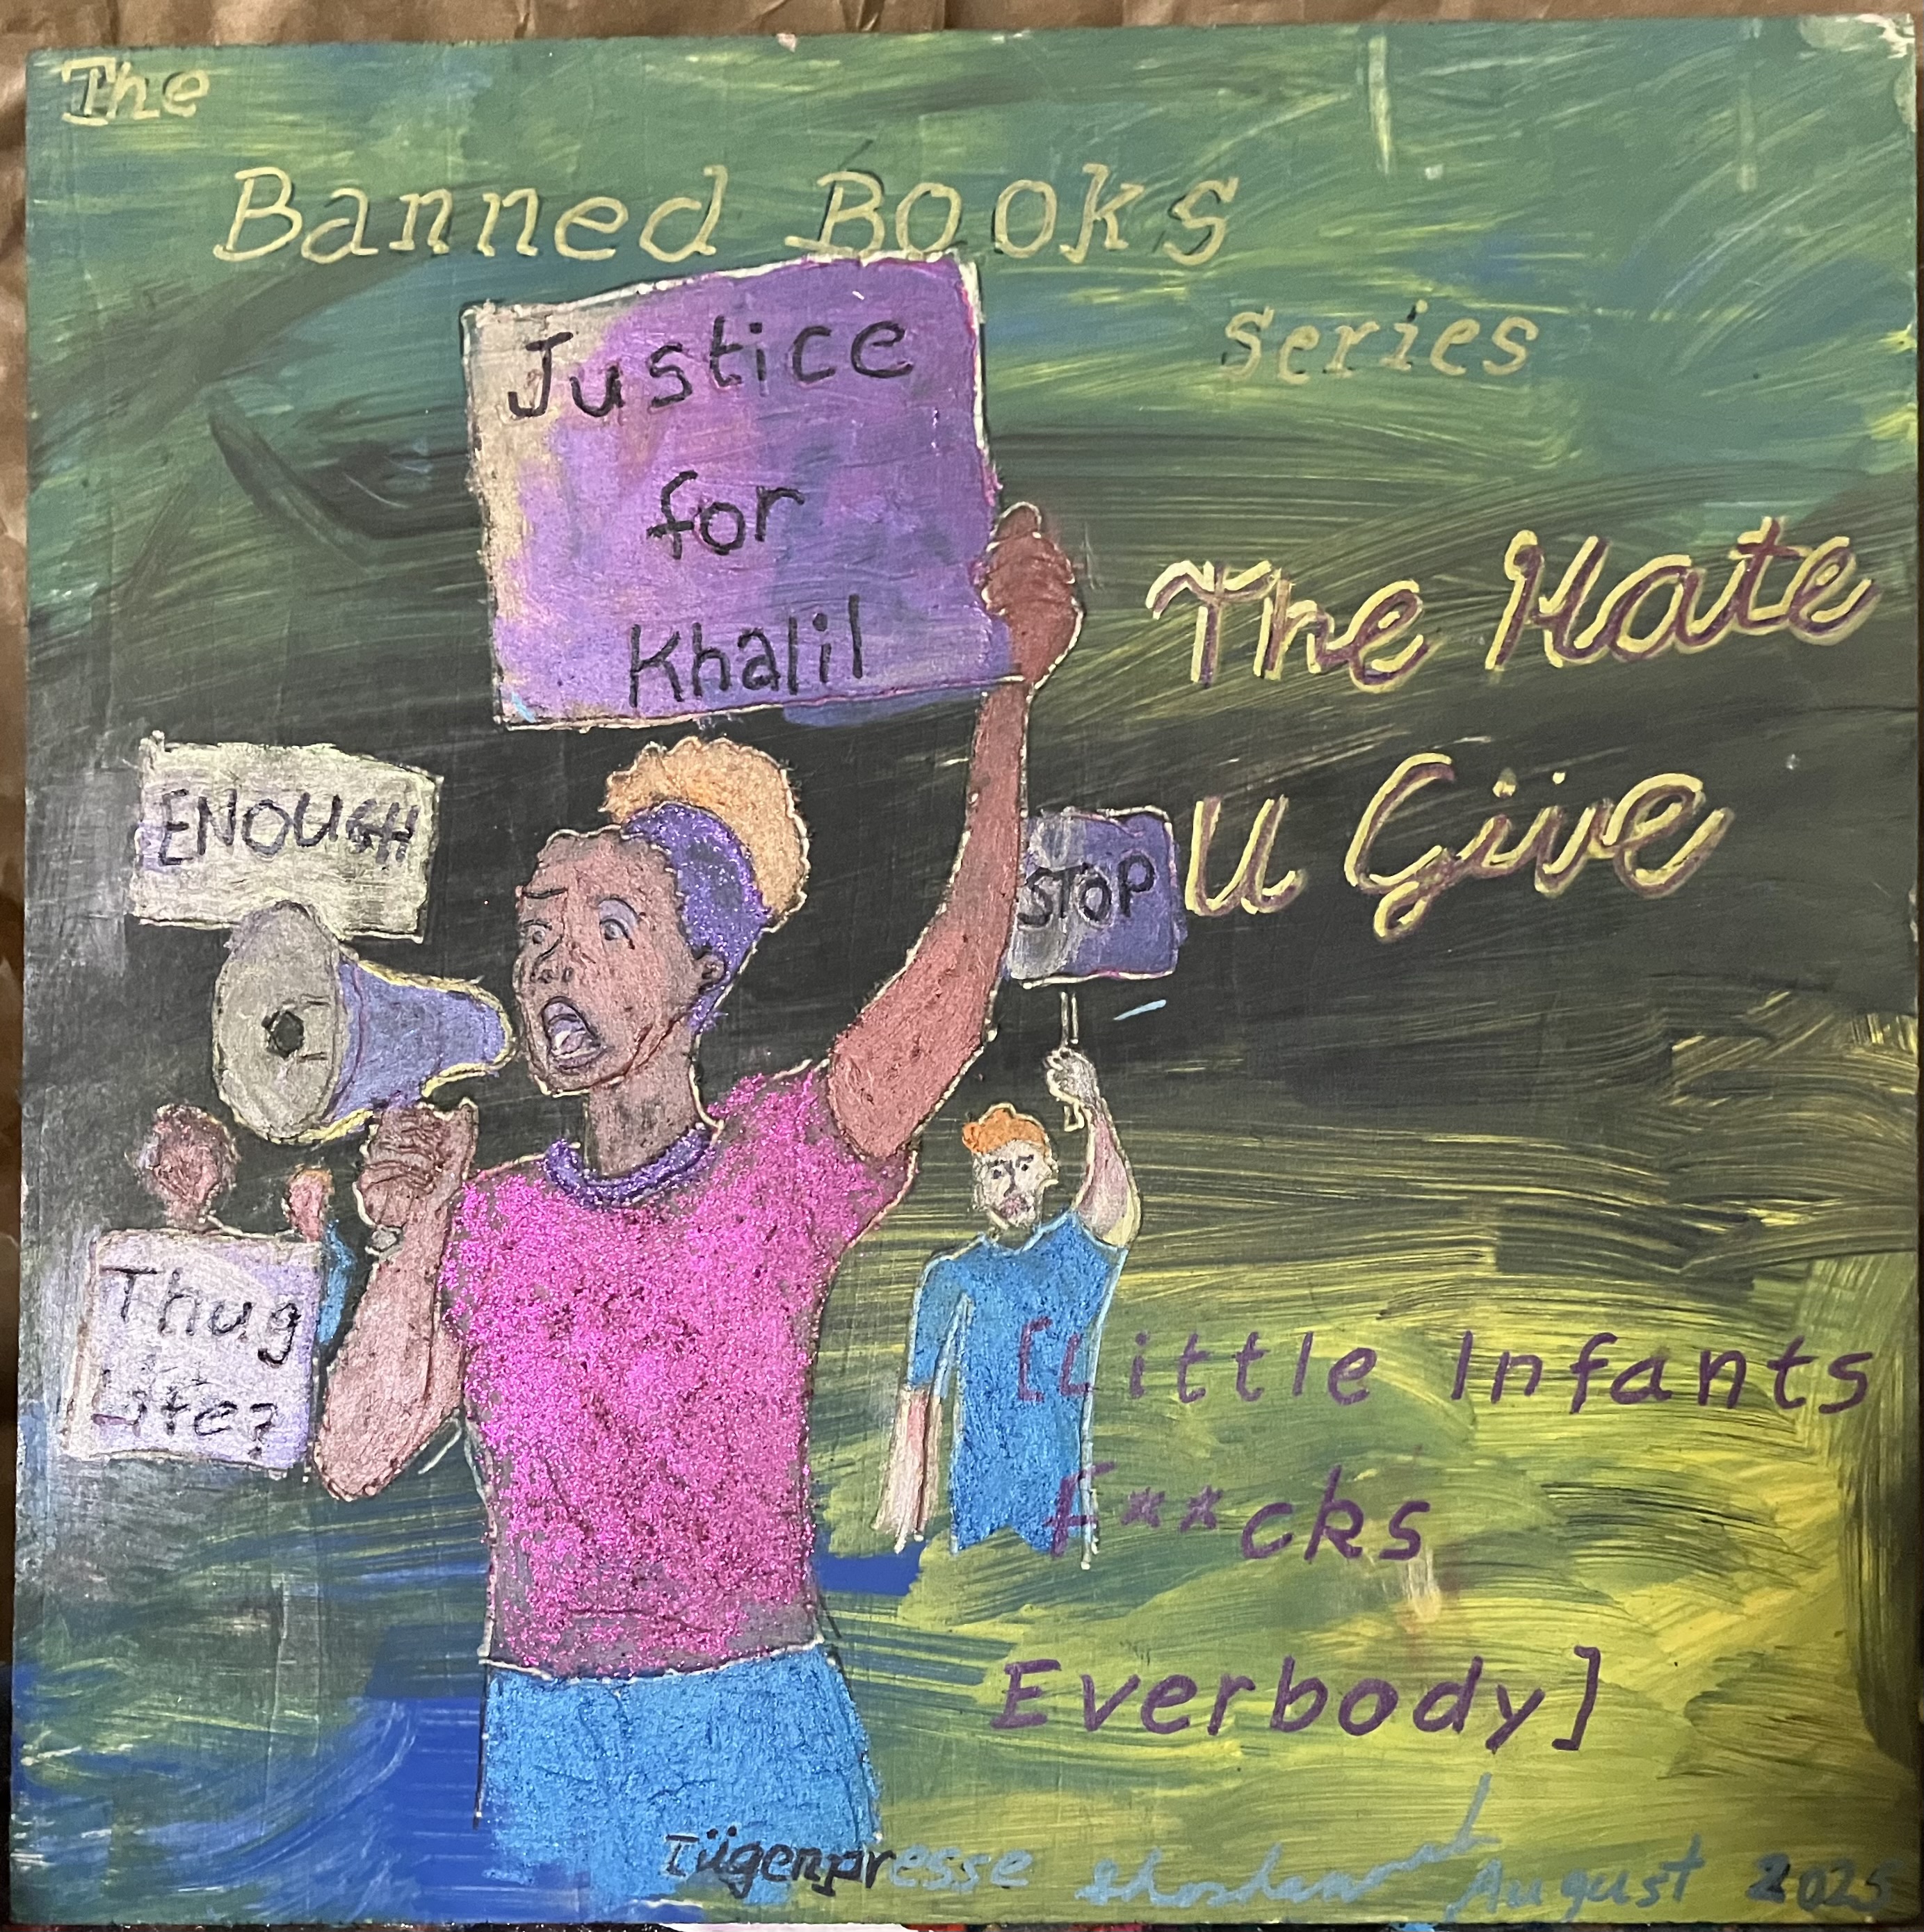 The
Banned Books
series
Justice
for
Khalil
The Hate
U Give
ENOUGH
STOP
Thug
Life?
[Little Infants
F**cks
Everbody]
Iügenpresse
August 2025